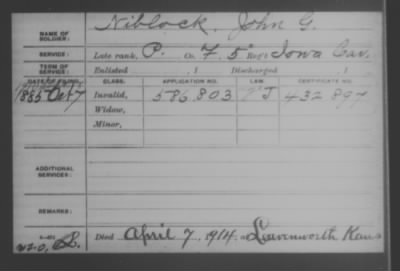 NAME OF SOLDIER: Niblock, John G.
SERVICE: Late rank, P. Co. F. 5 Reg't Iowa Cav.
TERM OF SERVICE: Enlisted , 1 Discharged , 1
DATE OF FILING. CLASS. APPLICATION NO. LAW. CERTIFICATE NO.
1885 Oct 7 Invalid, 586.803 J 432.897
Widow,
Minor,
ADDITIONAL SERVICES:
REMARKS:
Died April 7, 1914, at Leavenworth Kans